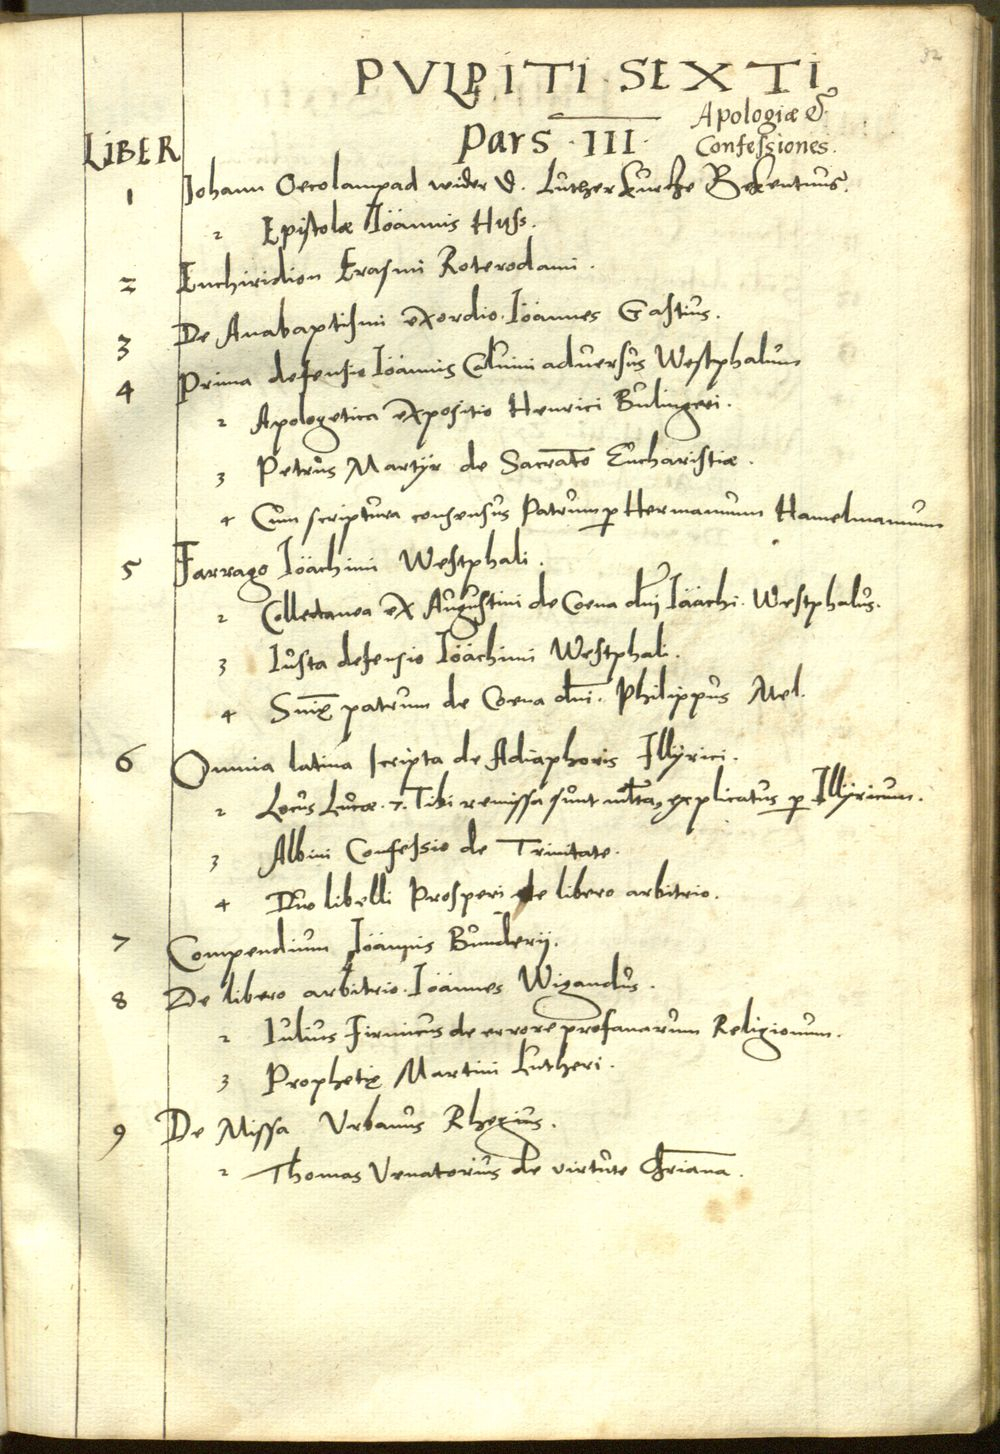 32
PVLPITI SEXTI
Pars · III · Apologiæ &
Confessiones.
LIBER
1 Johann Oecolampad wider D. Luther kurtze Bekentnus.
2 Epistolæ Iöannis Huss.
2 Enchiridion Erasmi Roterodami.
3 De Anabaptismi exordio. Iöannes Gastius.
4 Prima defensio Iöannis Caluini aduersus Westphalum
2 Apologetica expositio Henrici Bulingeri.
3 Petrus Martÿr de Sacrato Eucharistiæ.
4 Cum scriptura consensus Patrum p Hermannum Hamelmannum
5 Farrago Iöachimi Westphali.
2 Collectanea ex Augustini de Coena dnj Iöachi. Westphalus.
3 Iusta defensio Iöachimi Westphali.
4 patrum de Coena dni. Philippus Mel.
6 Omnia latina scripta de Adiaphoris Illÿrici.
2 Locus Lucæ. 7. Tibi remissa sunt mlta, explicatus p Illÿricum.
3 Albini Confessio de Trinitate.
4 Duo libelli Prosperi de libero arbitrio.
7 Compendium Iöannis Bunderij.
8 De libero arbitrio. Iöannes Wigandus.
2 Iulius Firmicus de errore profanarum Religionum.
3 Prophetię Martini Lutheri.
9 De Missa Vrbanus Rhegius.
2 Thomas Venatorius de virtute Chriana.